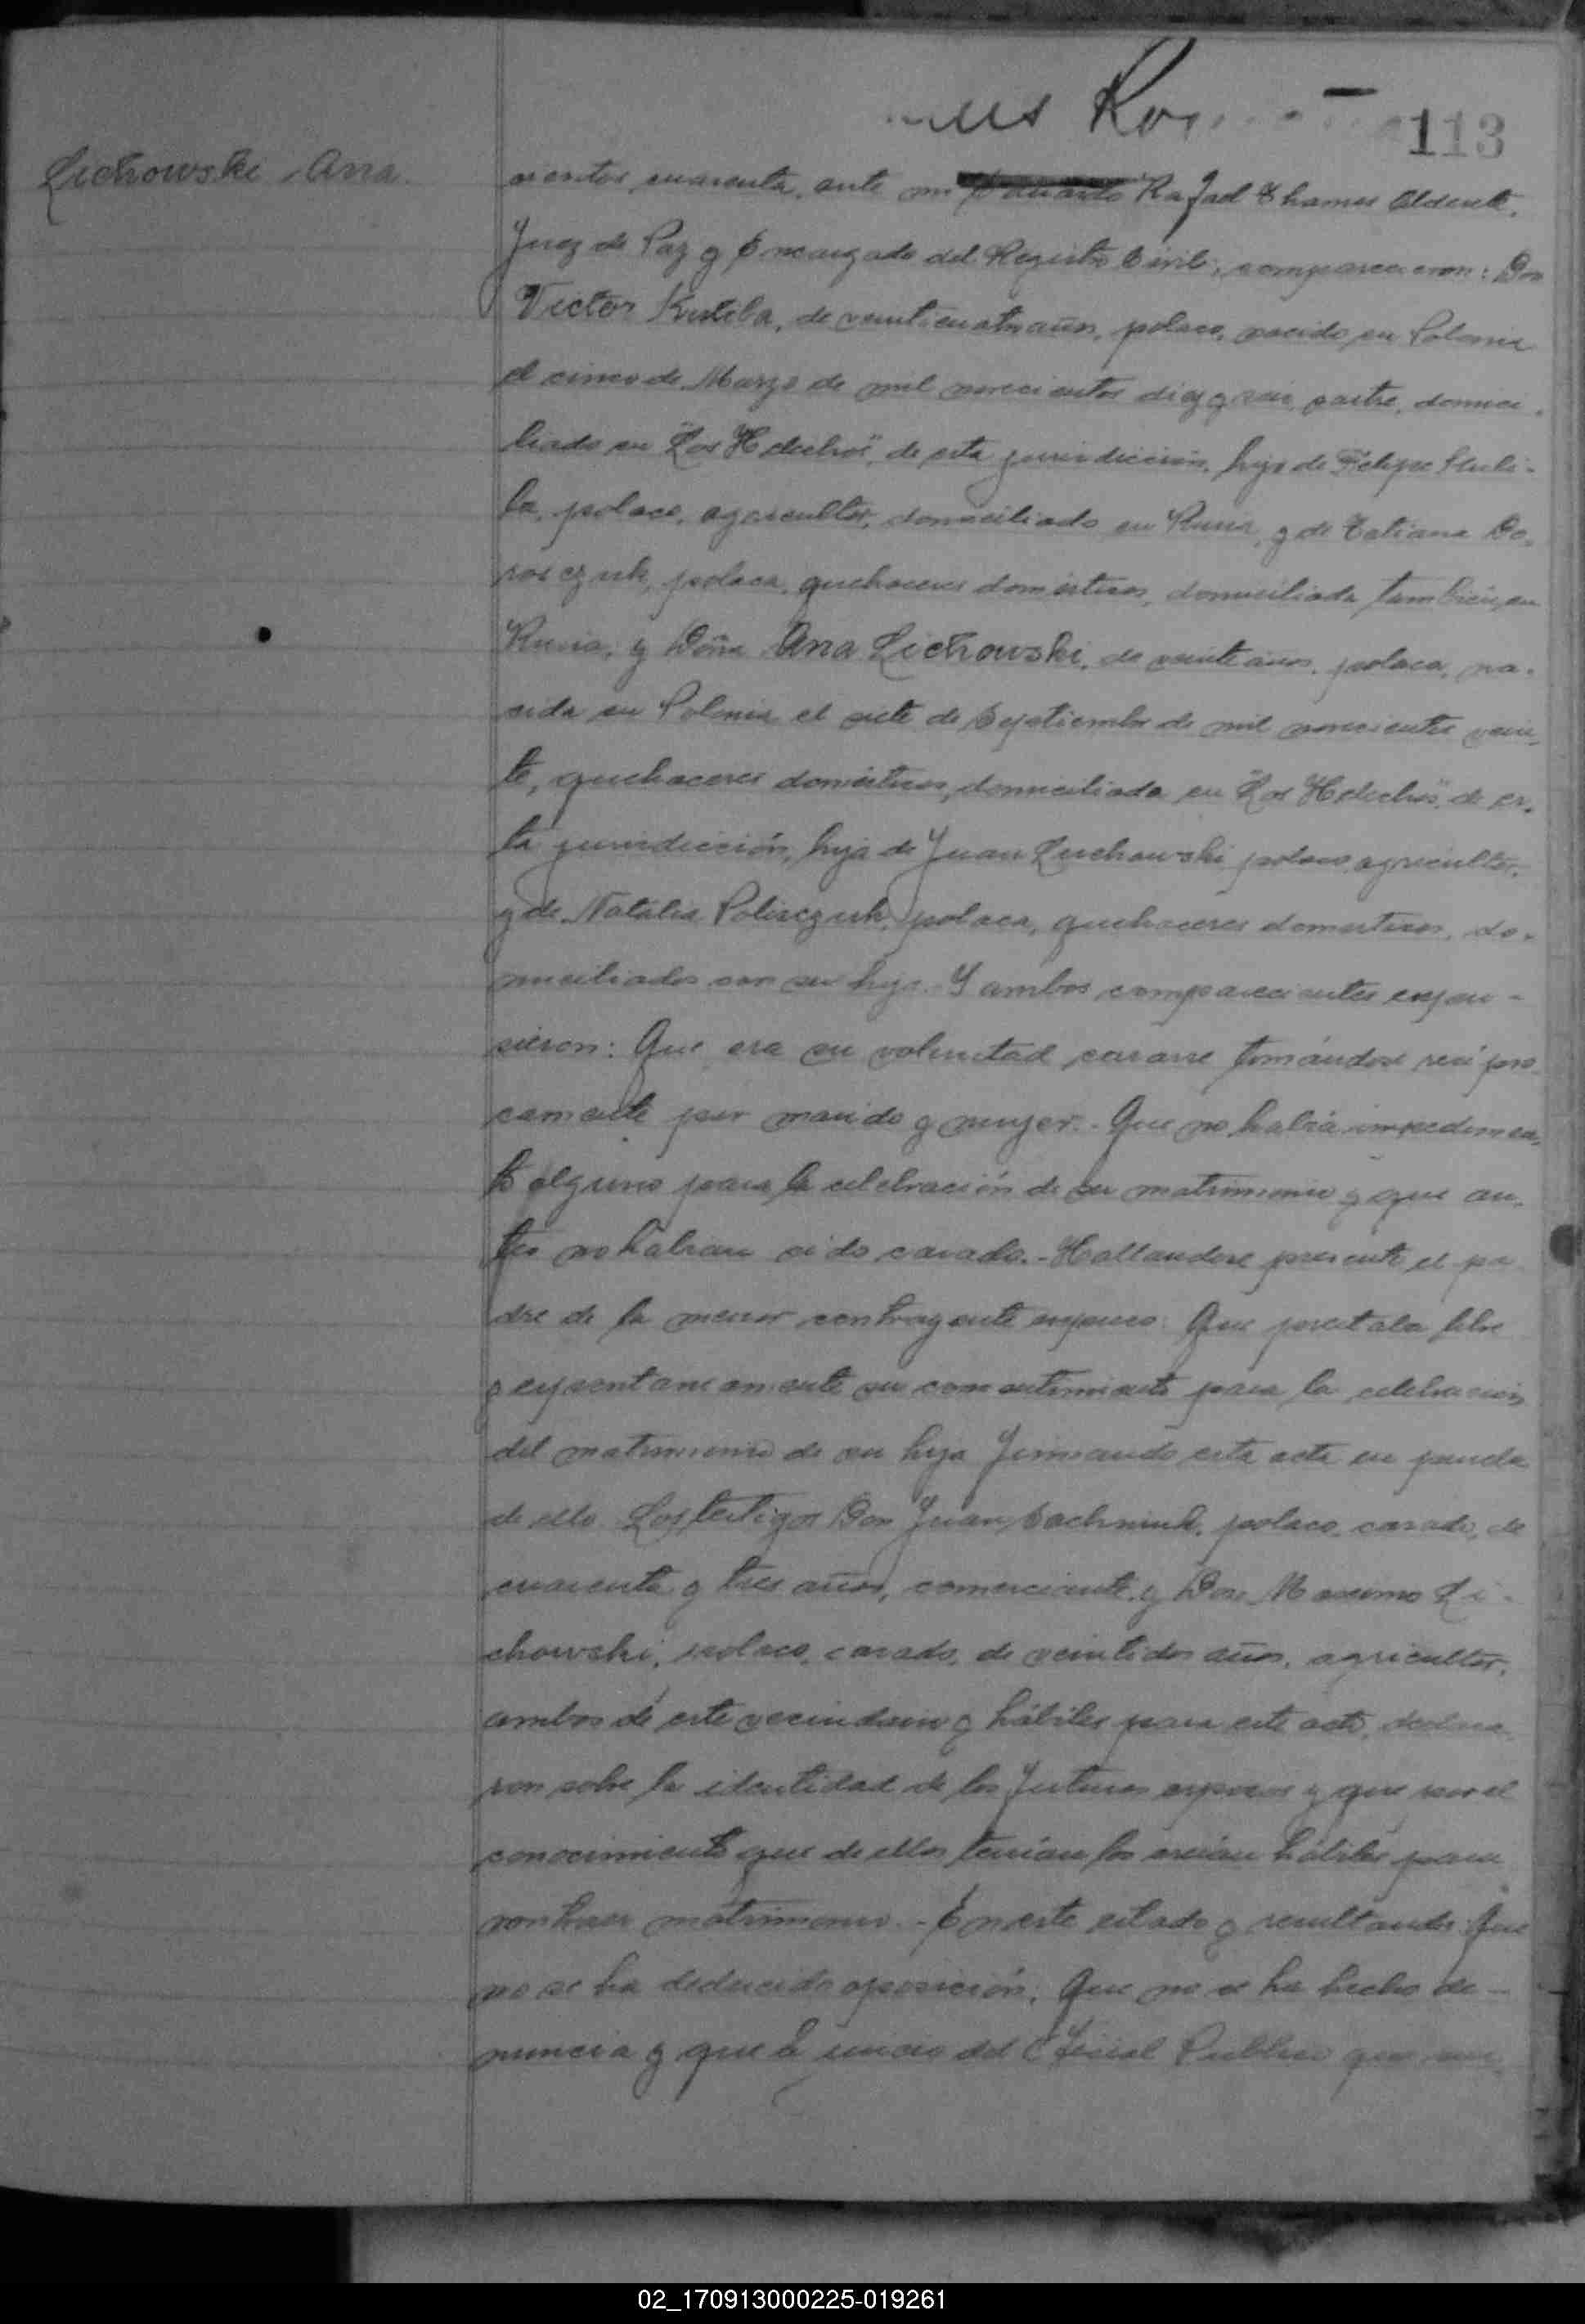 113
Lichowski, Ana.
cientos cuarenta, ante mi Rafael Thames Alderete,
Juez de Paz y Encargado del Registro Civil, comparecieron: Don
Victor Kustiba, de veinticuatro años, polaco, nacido en Polonia
el cinco de Marzo de mil novecientos diez y seis, sastre, domici-
liado en "Los Helechos", de esta jurisdiccion, hijo de Felipe
ba, polaco, agricultor, domiciliado en Rusia, y de Tatiana Do-
rosczuk, polaca, quehaceres domésticos, domiciliada tambien en
Rusia; y Doña Ana Lichowski, de veinte años, polaca, na-
cida en Polonia el siete de Septiembre de mil novecientos vein-
te, quehaceres domésticos, domiciliada en "Los Helechos", de es-
ta jurisdicción, hija de Juan Luchowski, polaco, agricultor,
y de Natalia Polisczuk, polaca, quehaceres domesticos, do-
miciliados con su hija.- Y ambos comparecientes expu-
sieron: Que era su voluntad casarse tomándose recipro-
camente por marido y mujer.- Que no había impedimen-
to alguno para la celebración de su matrimonio y que an-
tes no habian sido casados.- Hallandose presente el pa-
dre de la menor contrayente expuso: Que prestaba libre
y espontaneamente su consentimiento para la celebracion
del matrimonio de su hija firmando esta acta en prueba
de ello. Los testigos Don Juan Sachniuk, polaco, casado, de
cuarenta y tres años, comerciante, y Don Maximo Li-
chowski, polaco, casado, de veintidos años, agricultor,
ambos de este vecindario y hábiles para este acto, declara-
ron sobre la identidad de los futuros esposos y que por el
conocimiento que de ellos tenian los creian hábiles para
contraer matrimonio.- En este estado y resultando: Que
no se ha deducido oposición. Que no se ha hecho de-
nuncia y que a juicio del Oficial Publico que
02_170913000225-019261